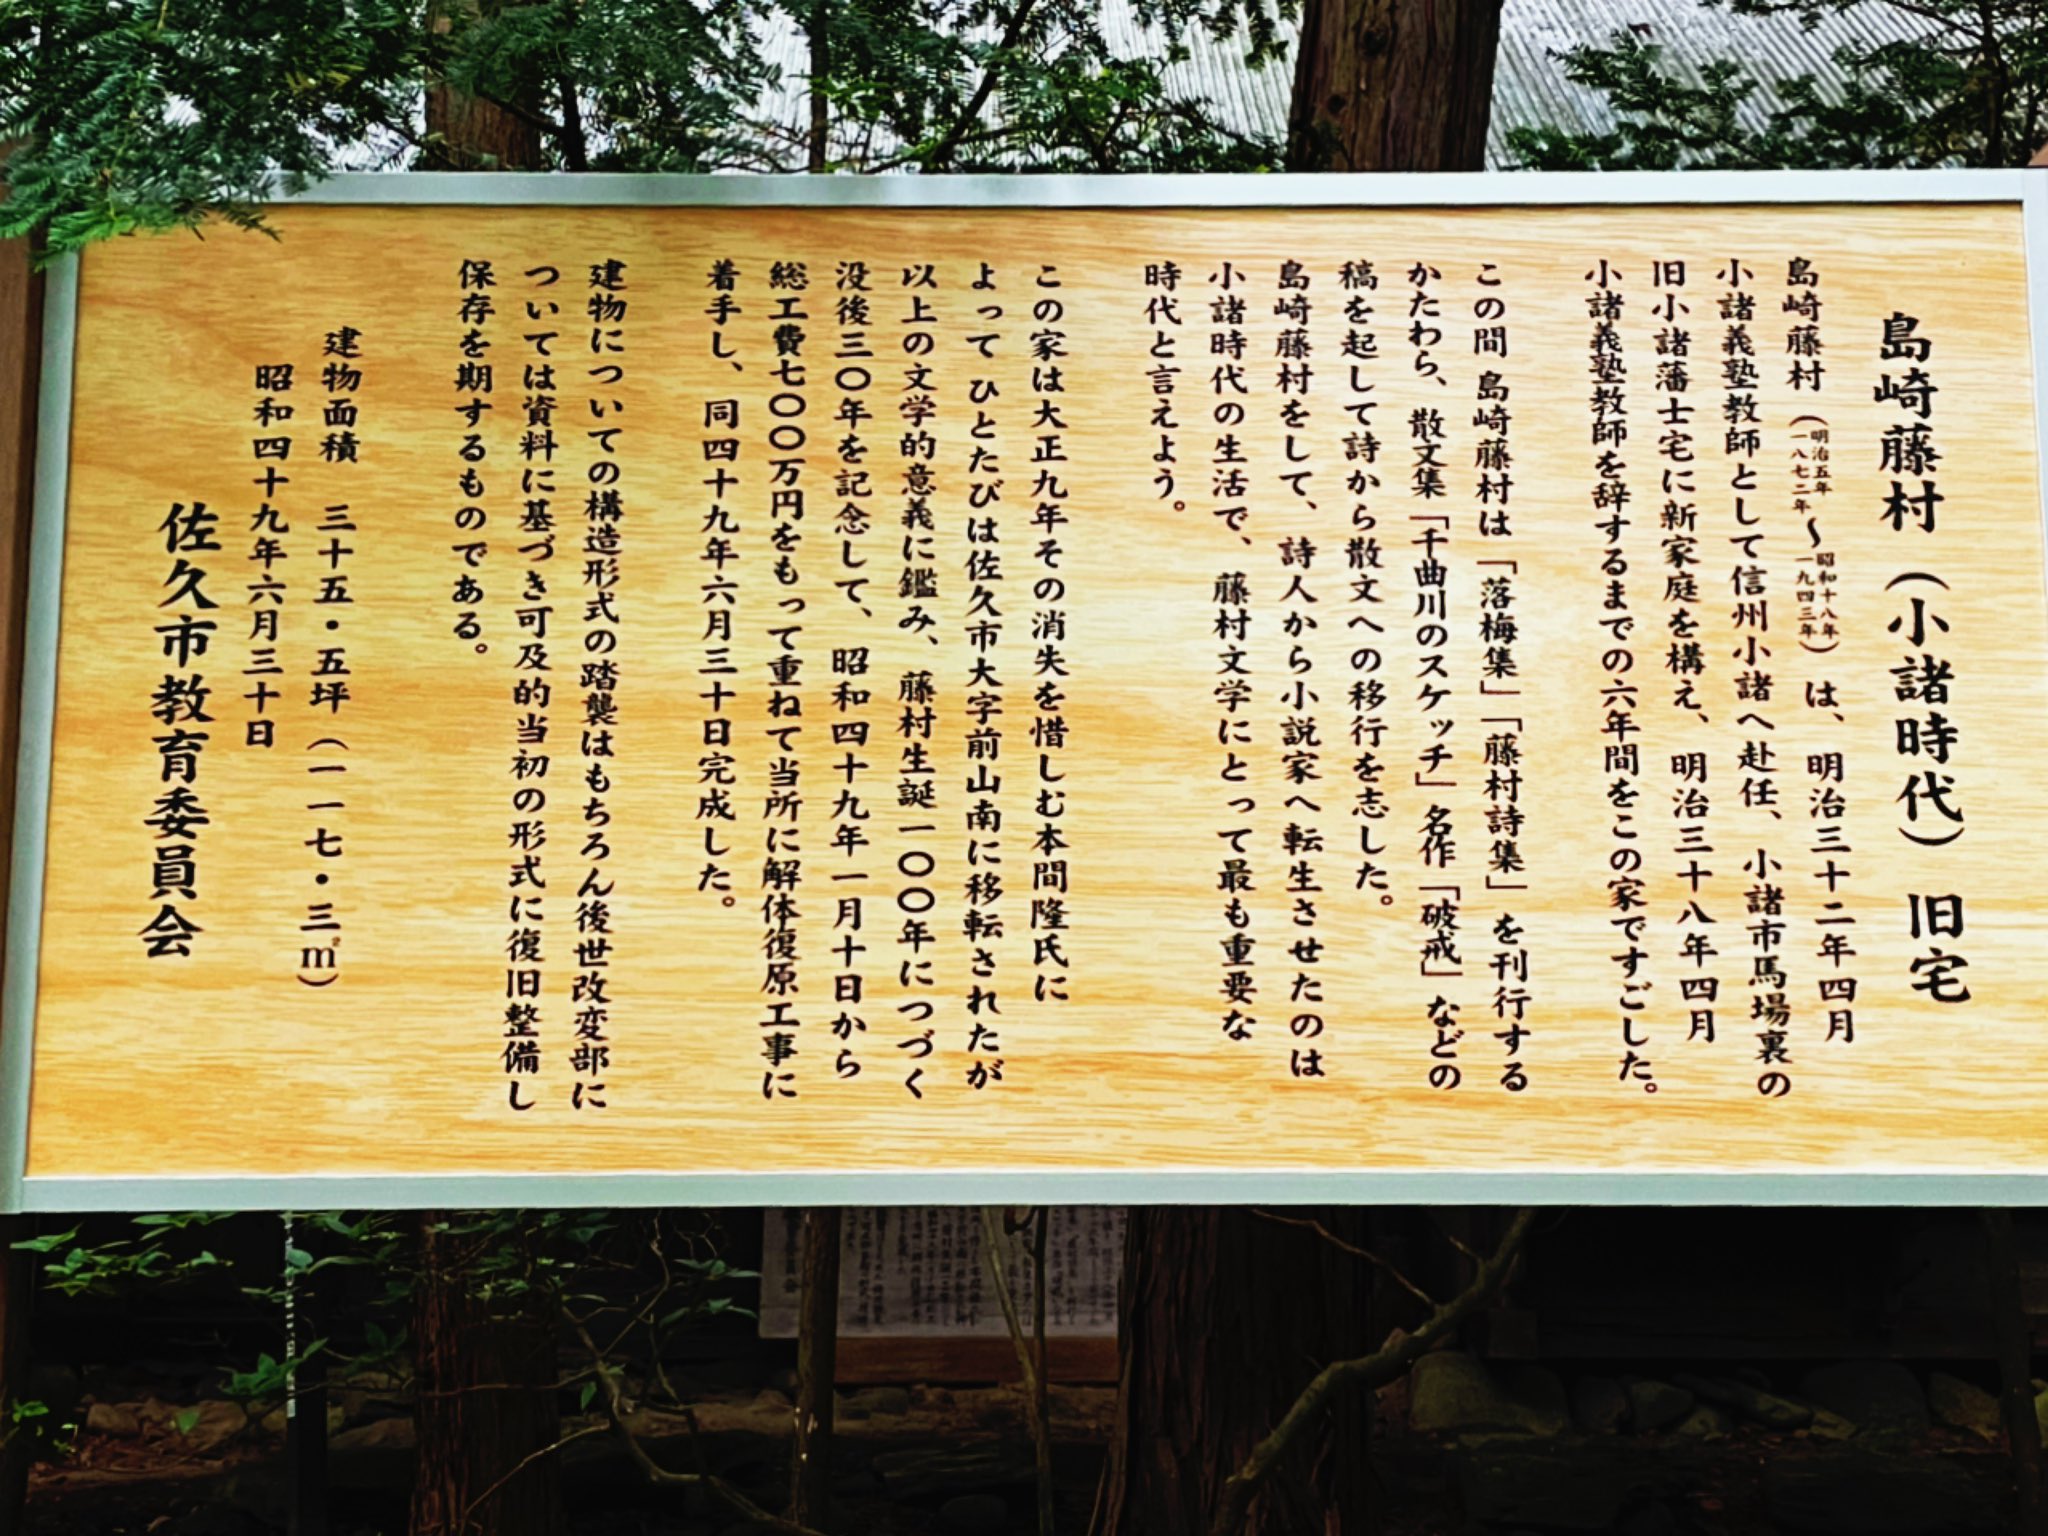 島崎藤村(小諸時代)旧宅
島崎藤村(明治五年一八七二年〜昭和十八年一九四三年)は、明治三十二年四月
小諸義塾教師として信州小諸へ赴任、小諸市馬場裏の
旧小諸藩士宅に新家庭を構え、明治三十八年四月
小諸義塾教師を辞するまでの六年間をこの家ですごした。
この間 島崎藤村は「落梅集」「藤村詩集」を刊行する
かたわら、散文集「千曲川のスケッチ」名作「破戒」などの
稿を起して詩から散文への移行を志した。
島崎藤村をして、詩人から小説家へ転生させたのは
小諸時代の生活で、藤村文学にとって最も重要な
時代と言えよう。
この家は大正九年その消失を惜しむ本間隆氏に
よって ひとたびは佐久市大字前山南に移転されたが
以上の文学的意義に鑑み、藤村生誕一〇〇年につづく
没後三〇年を記念して、昭和四十九年一月十日から
総工費七〇〇万円をもって重ねて当所に解体復原工事に
着手し、同四十九年六月三十日完成した。
建物についての構造形式の踏襲はもちろん後世改変部に
ついては資料に基づき可及的当初の形式に復旧整備し
保存を期するものである。
建物面積 三十五・五坪(一一七・三㎡)
昭和四十九年六月三十日
佐久市教育委員会